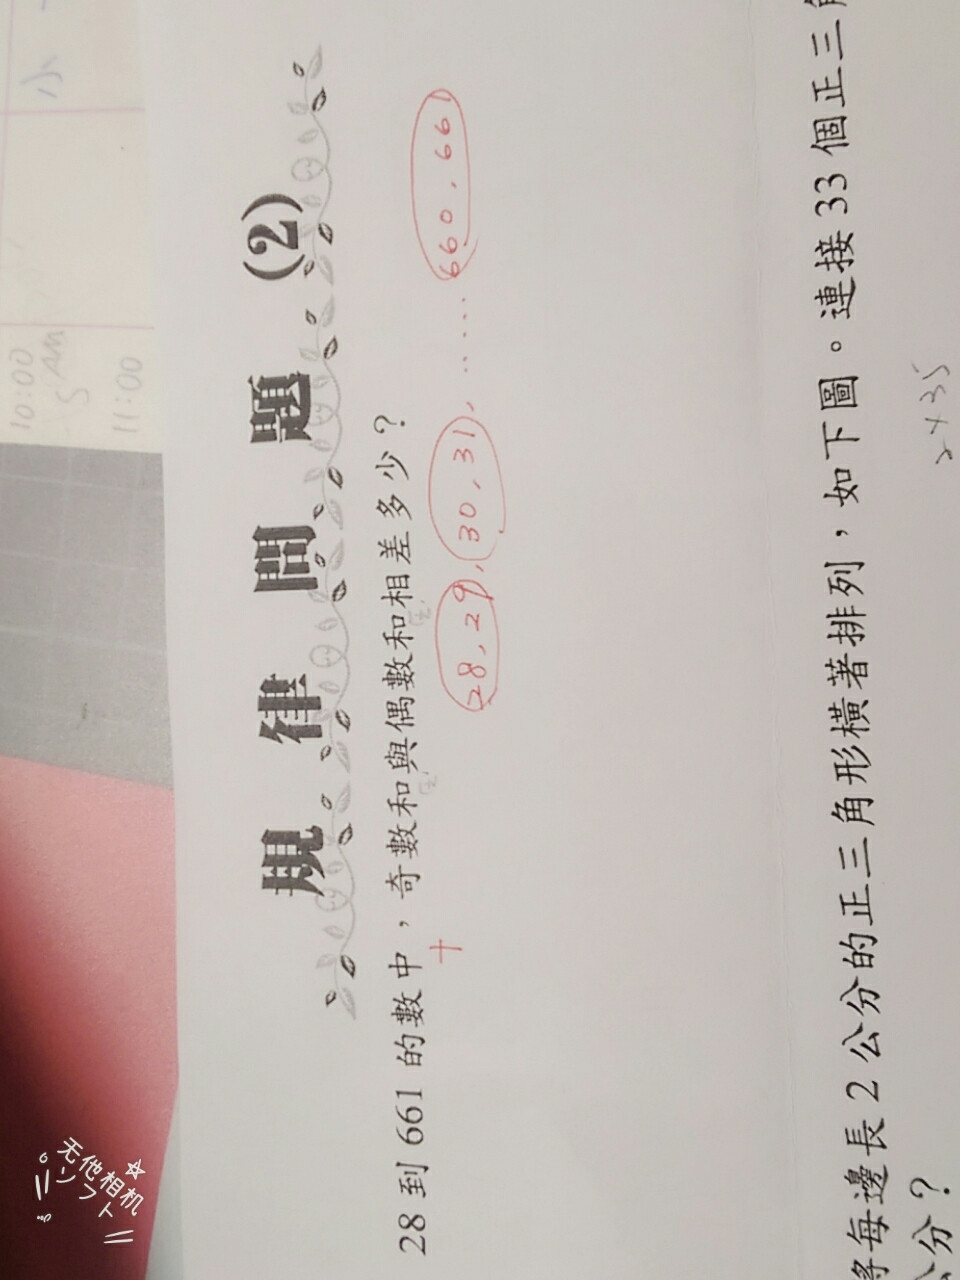 規律問題(2)
28到661的數中，奇數和與偶數和相差多少？
28,29,30,31,……660,661
將每邊長2公分的正三角形橫著排列，如下圖。連接33個正三角
公分？
10:00
5 AM
11:00
小
无他相机